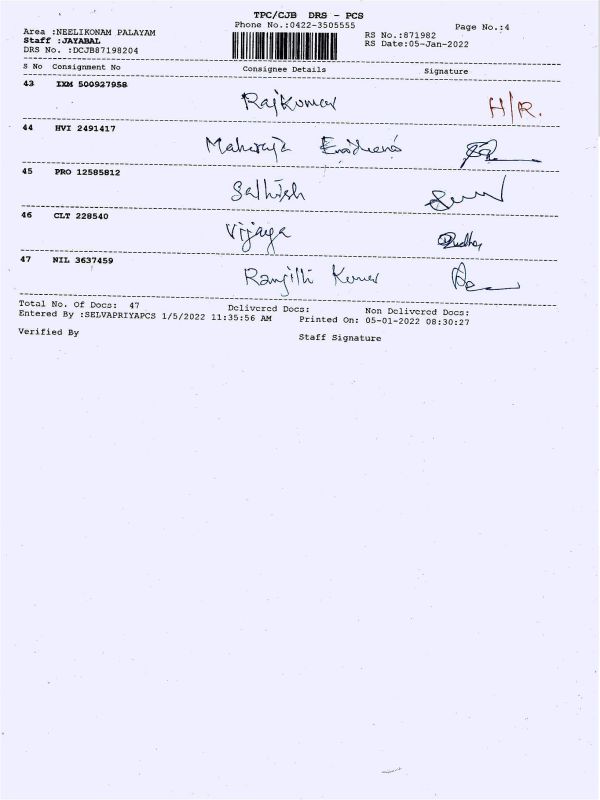 TPC/CJB DRS - PCS
Area :NEELIKONAM PALAYAM Phone No.:0422-3505555 Page No.:4
Staff :JAYABAL RS No.:871982
DRS No. :DCJB87198204 RS Date:05-Jan-2022
S No Consignment No Consignee Details Signature
43 IXM 500927958
Rajkumar H/R.
44 HVI 2491417
Maharaja
45 PRO 12585812
Sathish
46 CLT 228540
Vijaya
47 NIL 3637459
Ranjith Kumar
Total No. Of Docs: 47 Delivered Docs: Non Delivered Docs:
Entered By :SELVAPRIYAPCS 1/5/2022 11:35:56 AM Printed On: 05-01-2022 08:30:27
Verified By Staff Signature